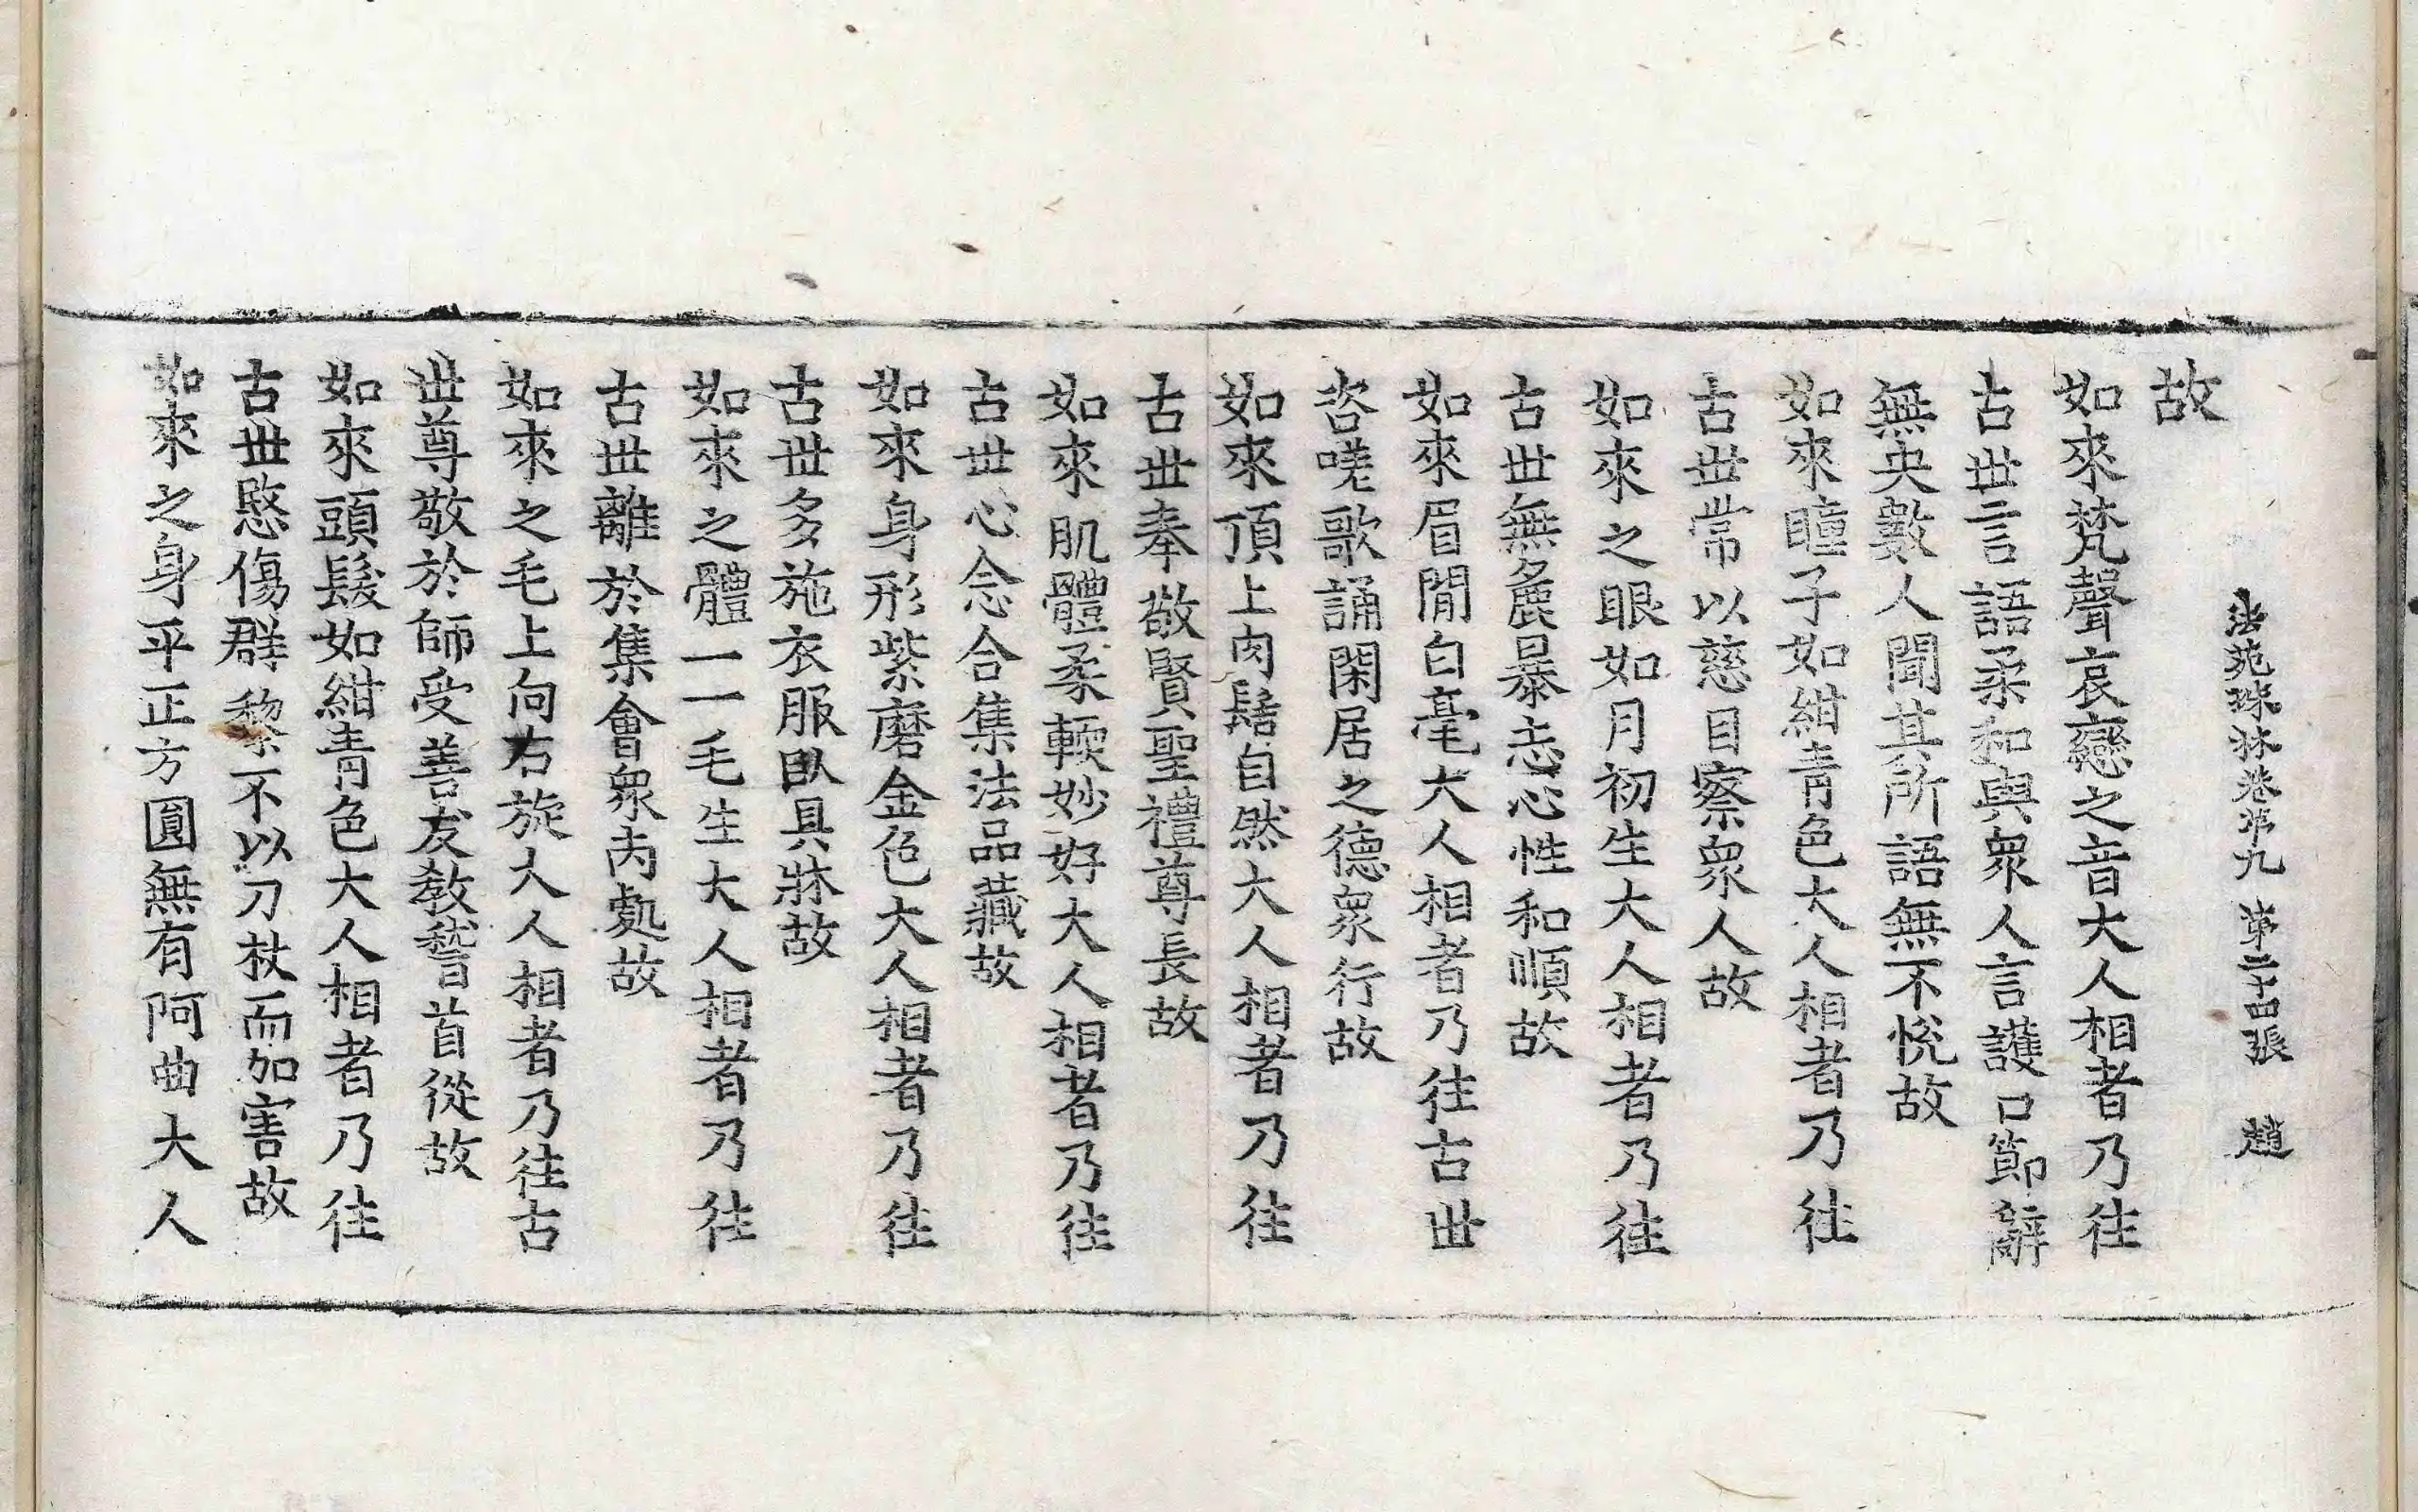 法苑珠林卷第九 第二十四張 趙
故
如來梵聲哀戀之音大人相者乃往
古世言語柔和與衆人言護口節辭
無央數人聞其所語無不悅故
如來瞳子如紺青色大人相者乃往
古世常以慈目察衆人故
如來之眼如月初生大人相者乃往
古世無麁暴志心性和順故
如來眉閒白毫大人相者乃往古世
咨嗟歌誦閑居之德衆行故
如來頂上肉髻自然大人相者乃往
古世奉敬賢聖禮尊長故
如來肌體柔輭妙好大人相者乃往
古世心念合集法品藏故
如來身形紫磨金色大人相者乃往
古世多施衣服臥具牀故
如來之體一一毛生大人相者乃往
古世離於集會衆丙處故
如來之毛上向右旋大人相者乃往古
世尊敬於師受善友教稽首從故
如來頭髮如紺青色大人相者乃往
古世愍傷群黎不以刀杖而加害故
如來之身平正方圓無有阿曲大人